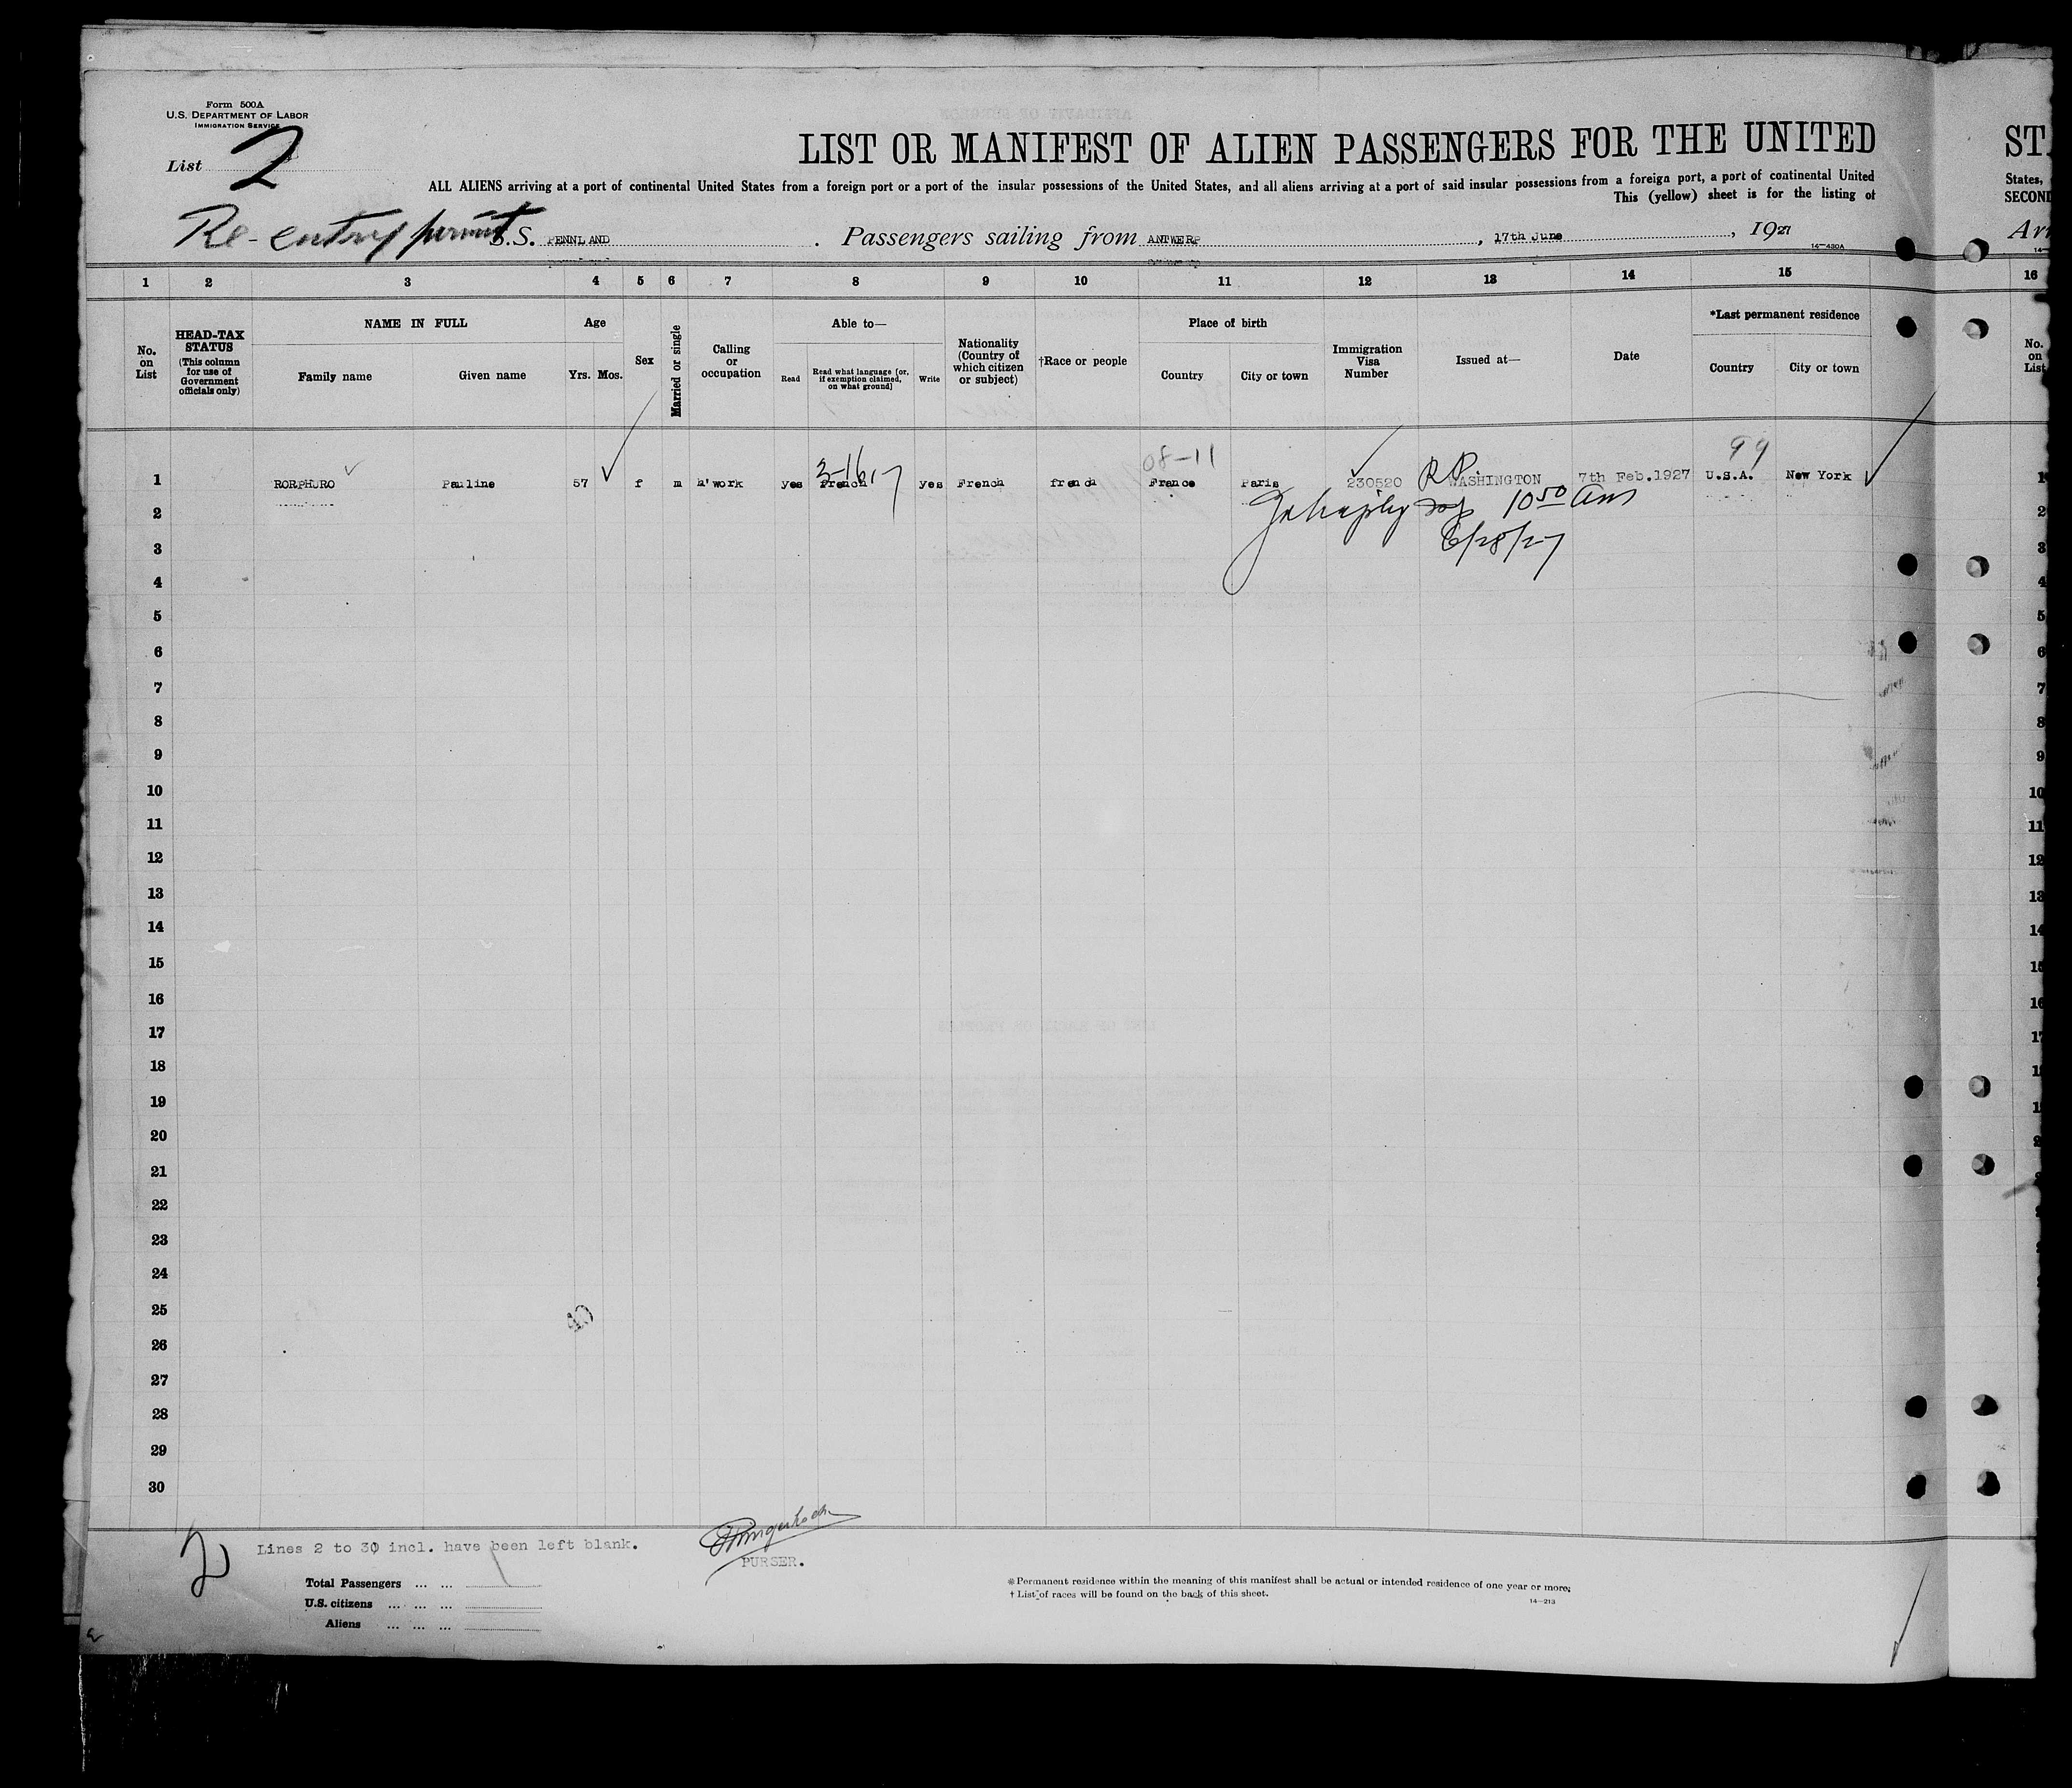 Form 500A
U.S. DEPARTMENT OF LABOR
IMMIGRATION SERVICE
List 2
LIST OR MANIFEST OF ALIEN PASSENGERS FOR THE UNITED
ALL ALIENS arriving at a port of continental United States from a foreign port or a port of the insular possessions of the United States, and all aliens arriving at a port of said insular possessions from a foreign port, a port of continental United
This (yellow) sheet is for the listing of
Re-entry permit S.S. PENNLAND . Passengers sailing from ANTWERP , 17th June , 1927
14—430A
ST
States,
SECOND
Arr
1 2 3 4 5 6 7 8 9 10 11 12 13 14 15 16
No. on List
HEAD-TAX STATUS (This column for use of Government officials only)
NAME IN FULL
Family name Given name
Age
Yrs. Mos.
Sex
Married or single
Calling or occupation
Able to—
Read Read what language [or, if exemption claimed, on what ground] Write
Nationality (Country of which citizen or subject)
†Race or people
Place of birth
Country City or town
Immigration Visa Number
Issued at—
Date
*Last permanent residence
Country City or town
No. on List
3-1617 08-11 99
1 RORPHURO Pauline 57 f m h'work yes french yes French french France Paris 230520 RP. WASHINGTON 7th Feb.1927 U.S.A. New York 1
2 10 50 Am 2
3 6/28/27 3
4 4
5 5
6 6
7 7
8 8
9 9
10 10
11 11
12 12
13 13
14 14
15 15
16 16
17 17
18
19
20
21
22
23
24
25
26
27
28
29
30
2 Lines 2 to 30 incl. have been left blank.
PURSER.
Total Passengers ... ...
U.S. citizens ... ... ...
Aliens ... ... ...
*Permanent residence within the meaning of this manifest shall be actual or intended residence of one year or more.
† List of races will be found on the back of this sheet.
14—213